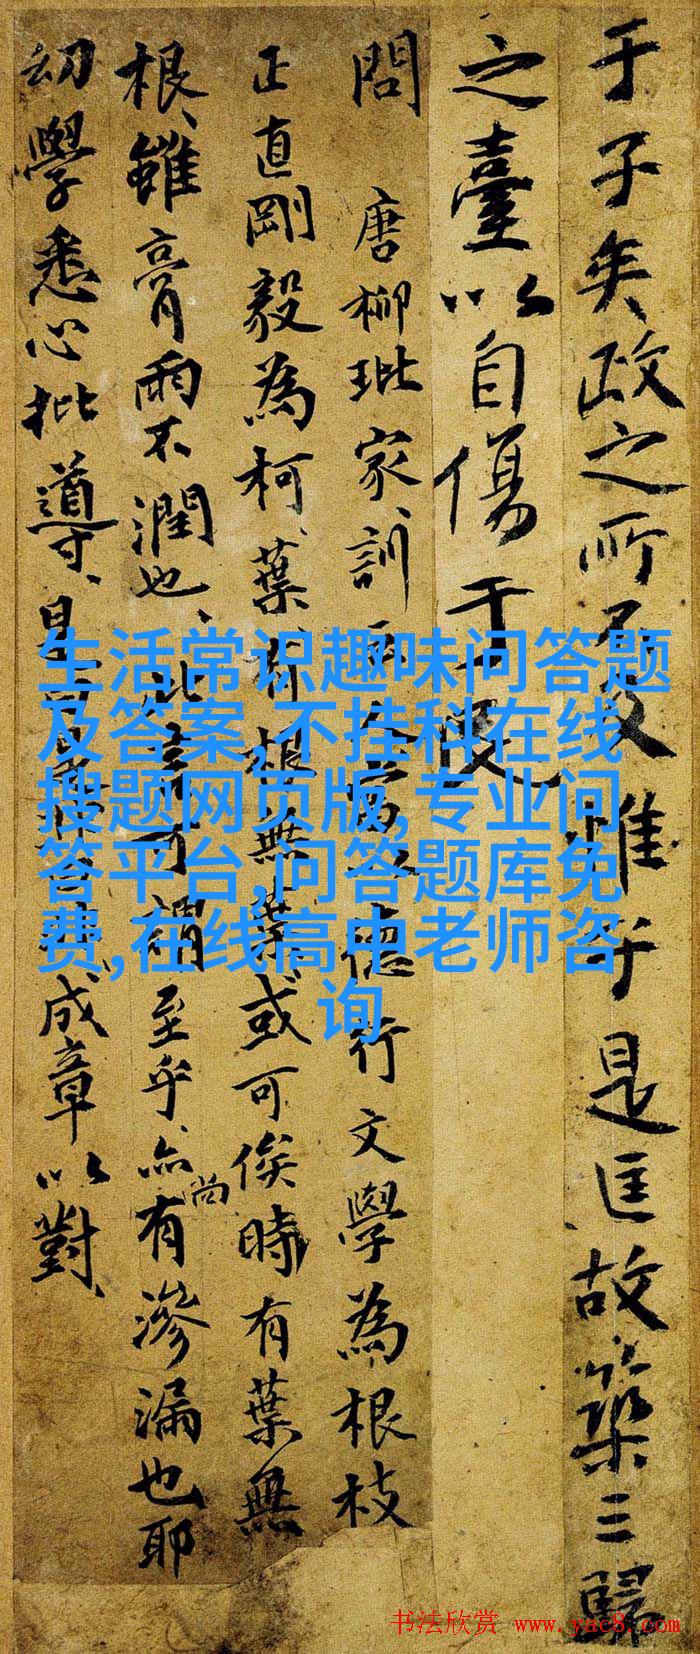 于子矣政之所不及惟于是匡故築三歸
之臺以自傷于民
問 唐柳玭家訓
德行文學為根枝
正直剛毅為柯葉有根無葉或可俟時有葉無
根雖膏雨不潤也
謂至乎亦尚有滲漏也耶
幼學悉心批導
成章以對
生活常识趣味问答题
及答案,不挂科在线
搜题网页版,专业问
答平台,问答题库免
费,在线高中老师咨
询
书法欣赏 www.yac8.com